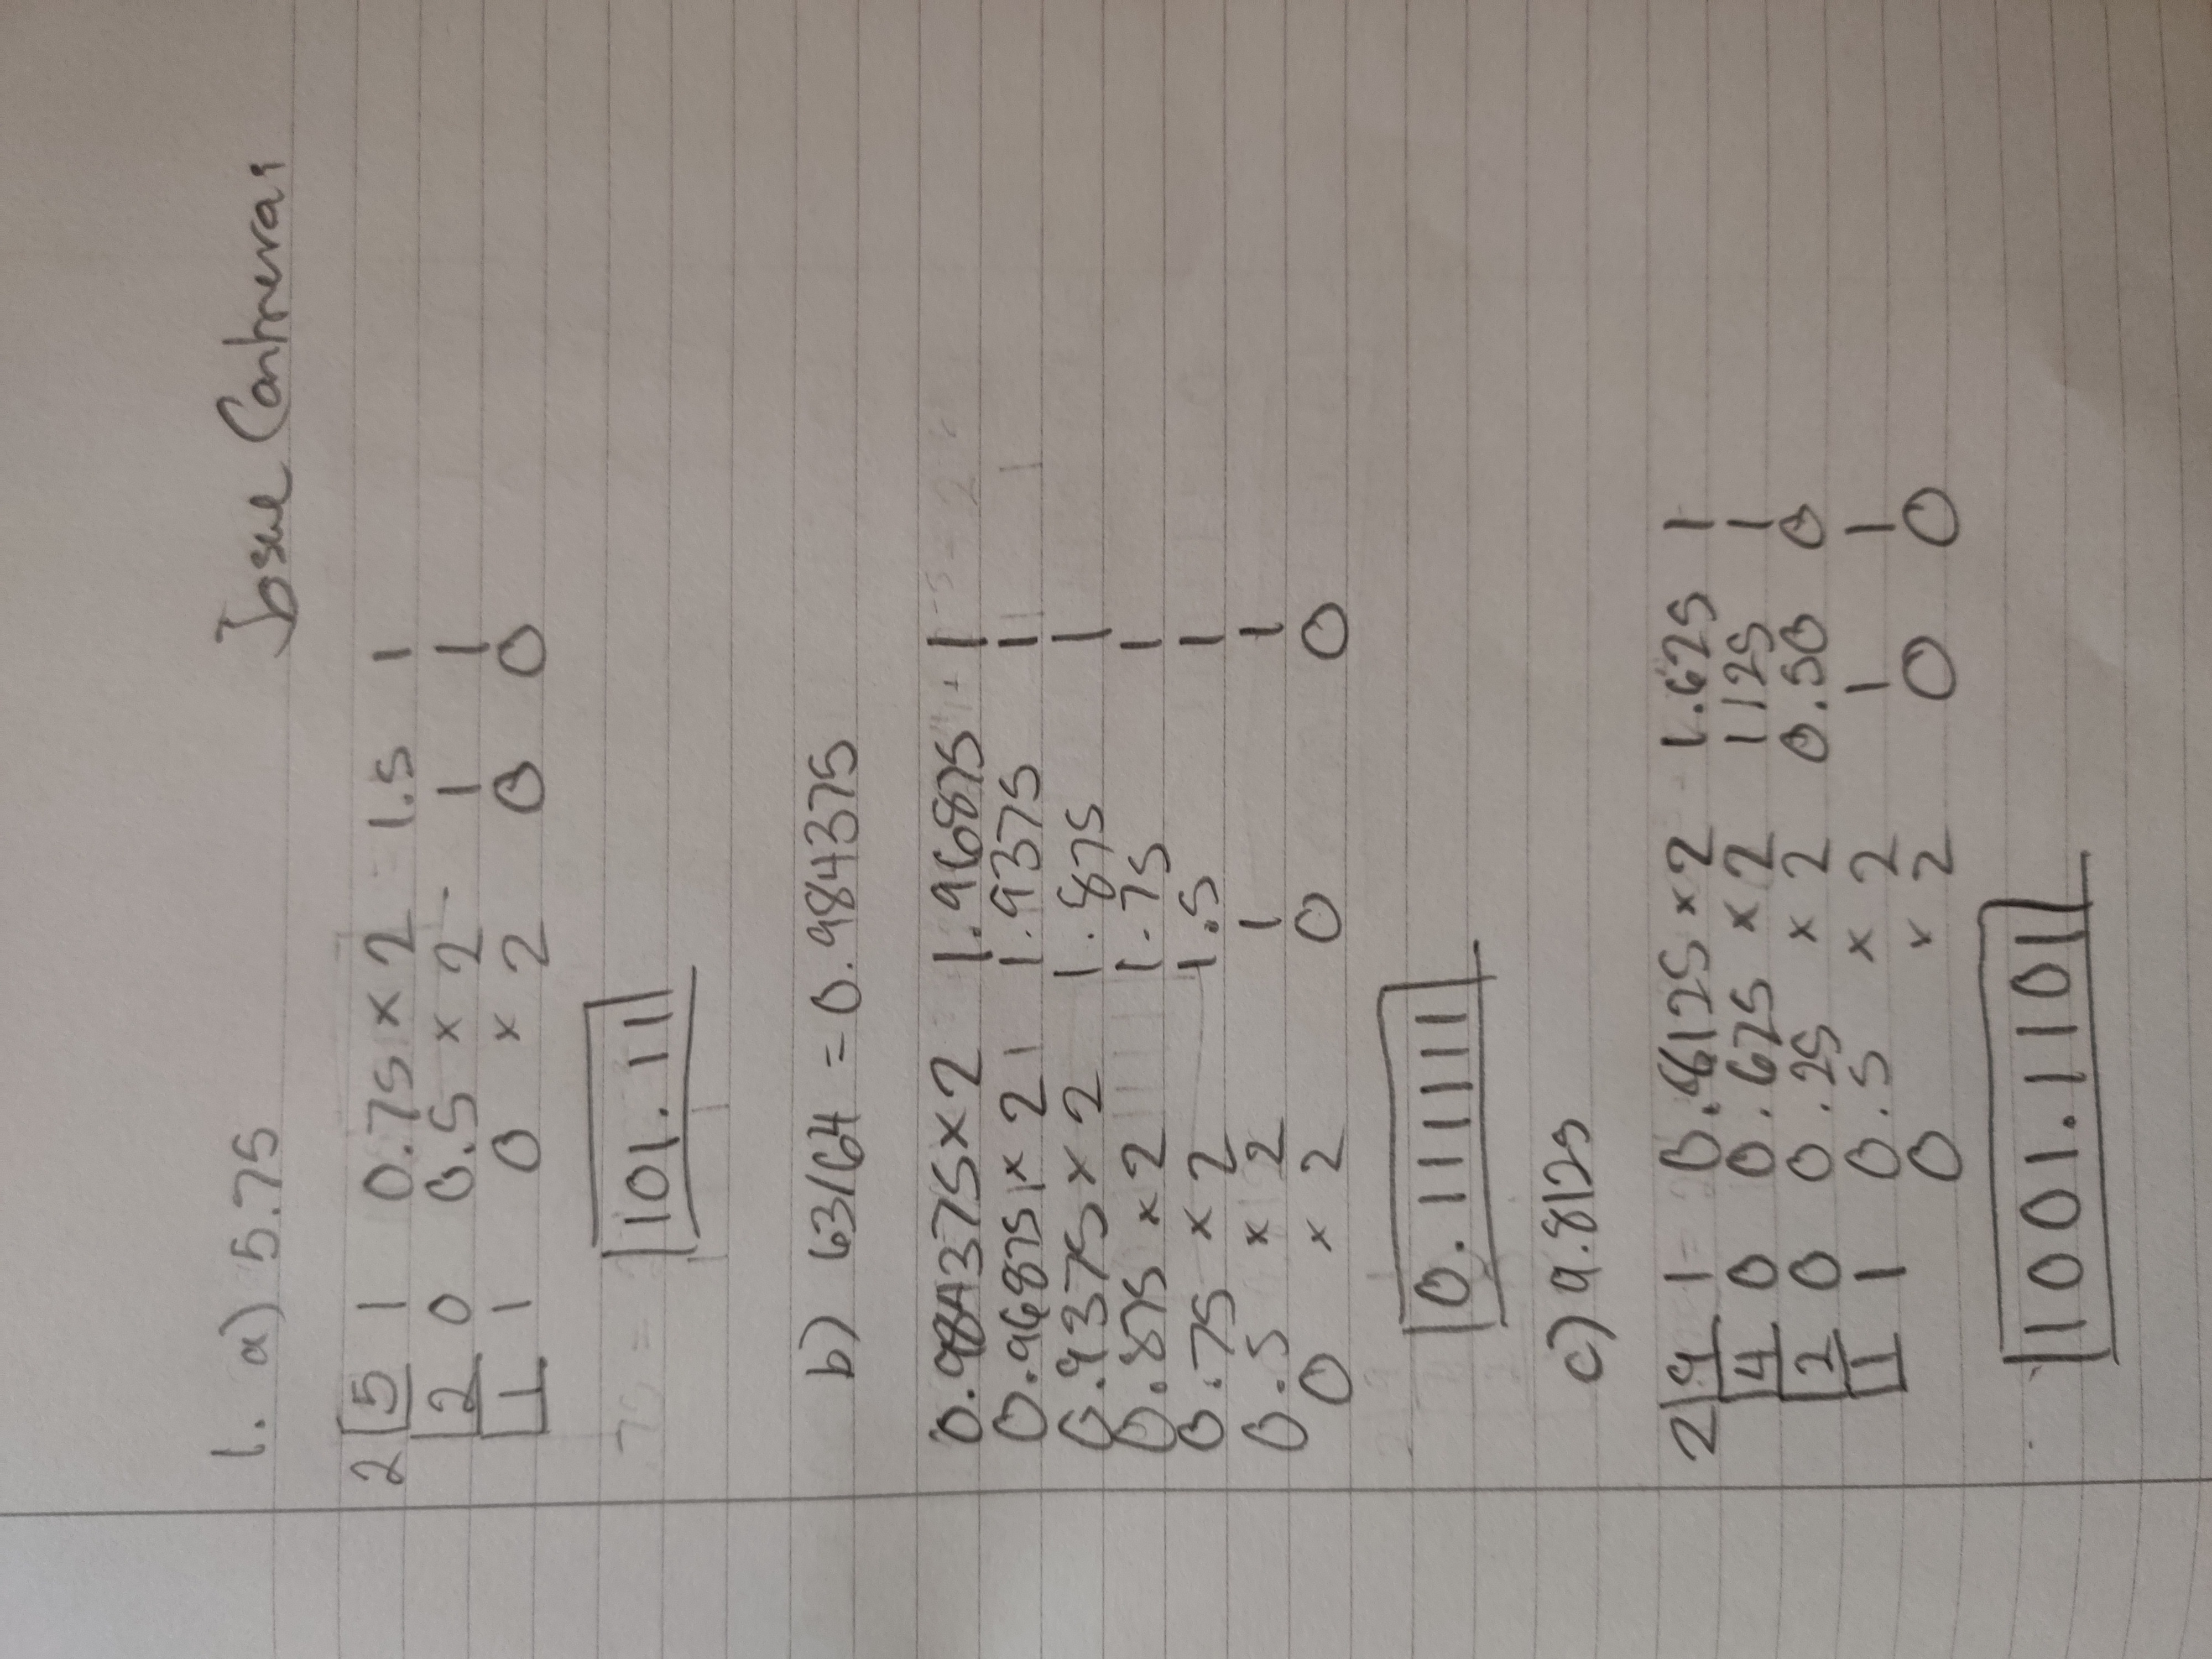 Josue Contreras
1. a) 5.75
2 5 1 0.75 x 2 = 1.5 1
2 0 0.5 x 2 1 1
1 1 0 x 2 0 0
101.11
b) 63/64 = 0.984375
0.984375 x 2 1.96875 1
0.96875 x 2 1.9375 1
0.9375 x 2 1.875 1
0.875 x 2 1.75 1
0.75 x 2 1.5 1
0.5 x 2 1 1
0 x 2 0 0
0.111111
c) 9.8125
2 9 1 0.8125 x 2 1.625 1
4 0 0.625 x 2 1.125 1
2 0 0.25 x 2 0.50 0
1 1 0.5 x 2 1 1
0 x 2 0 0
1001.1101